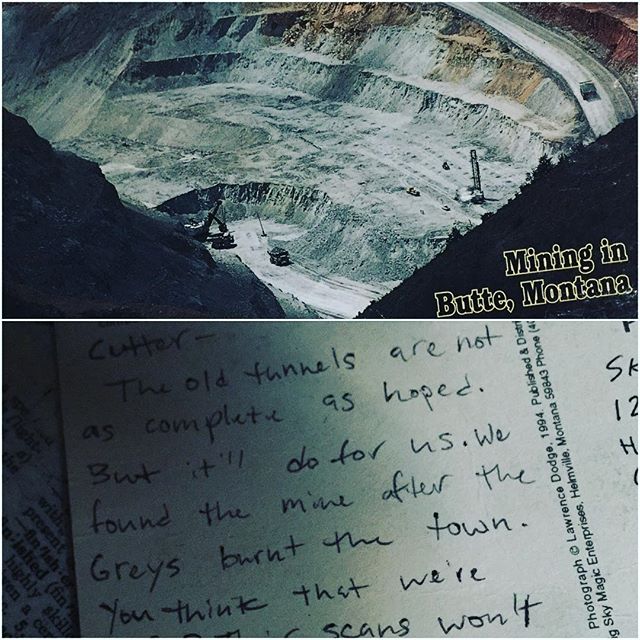 Mining in
Butte, Montana
Cutter-
The old tunnels are not
as complete as hoped.
But it'll do for us. We
found the mine after the
Greys burnt the town.
You think that we're
scans won't
Photograph © Lawrence Dodge, 1994. Published & Distri
g Sky Magic Enterprises, Helmville, Montana 59843 Phone (4
SK
12
H
present